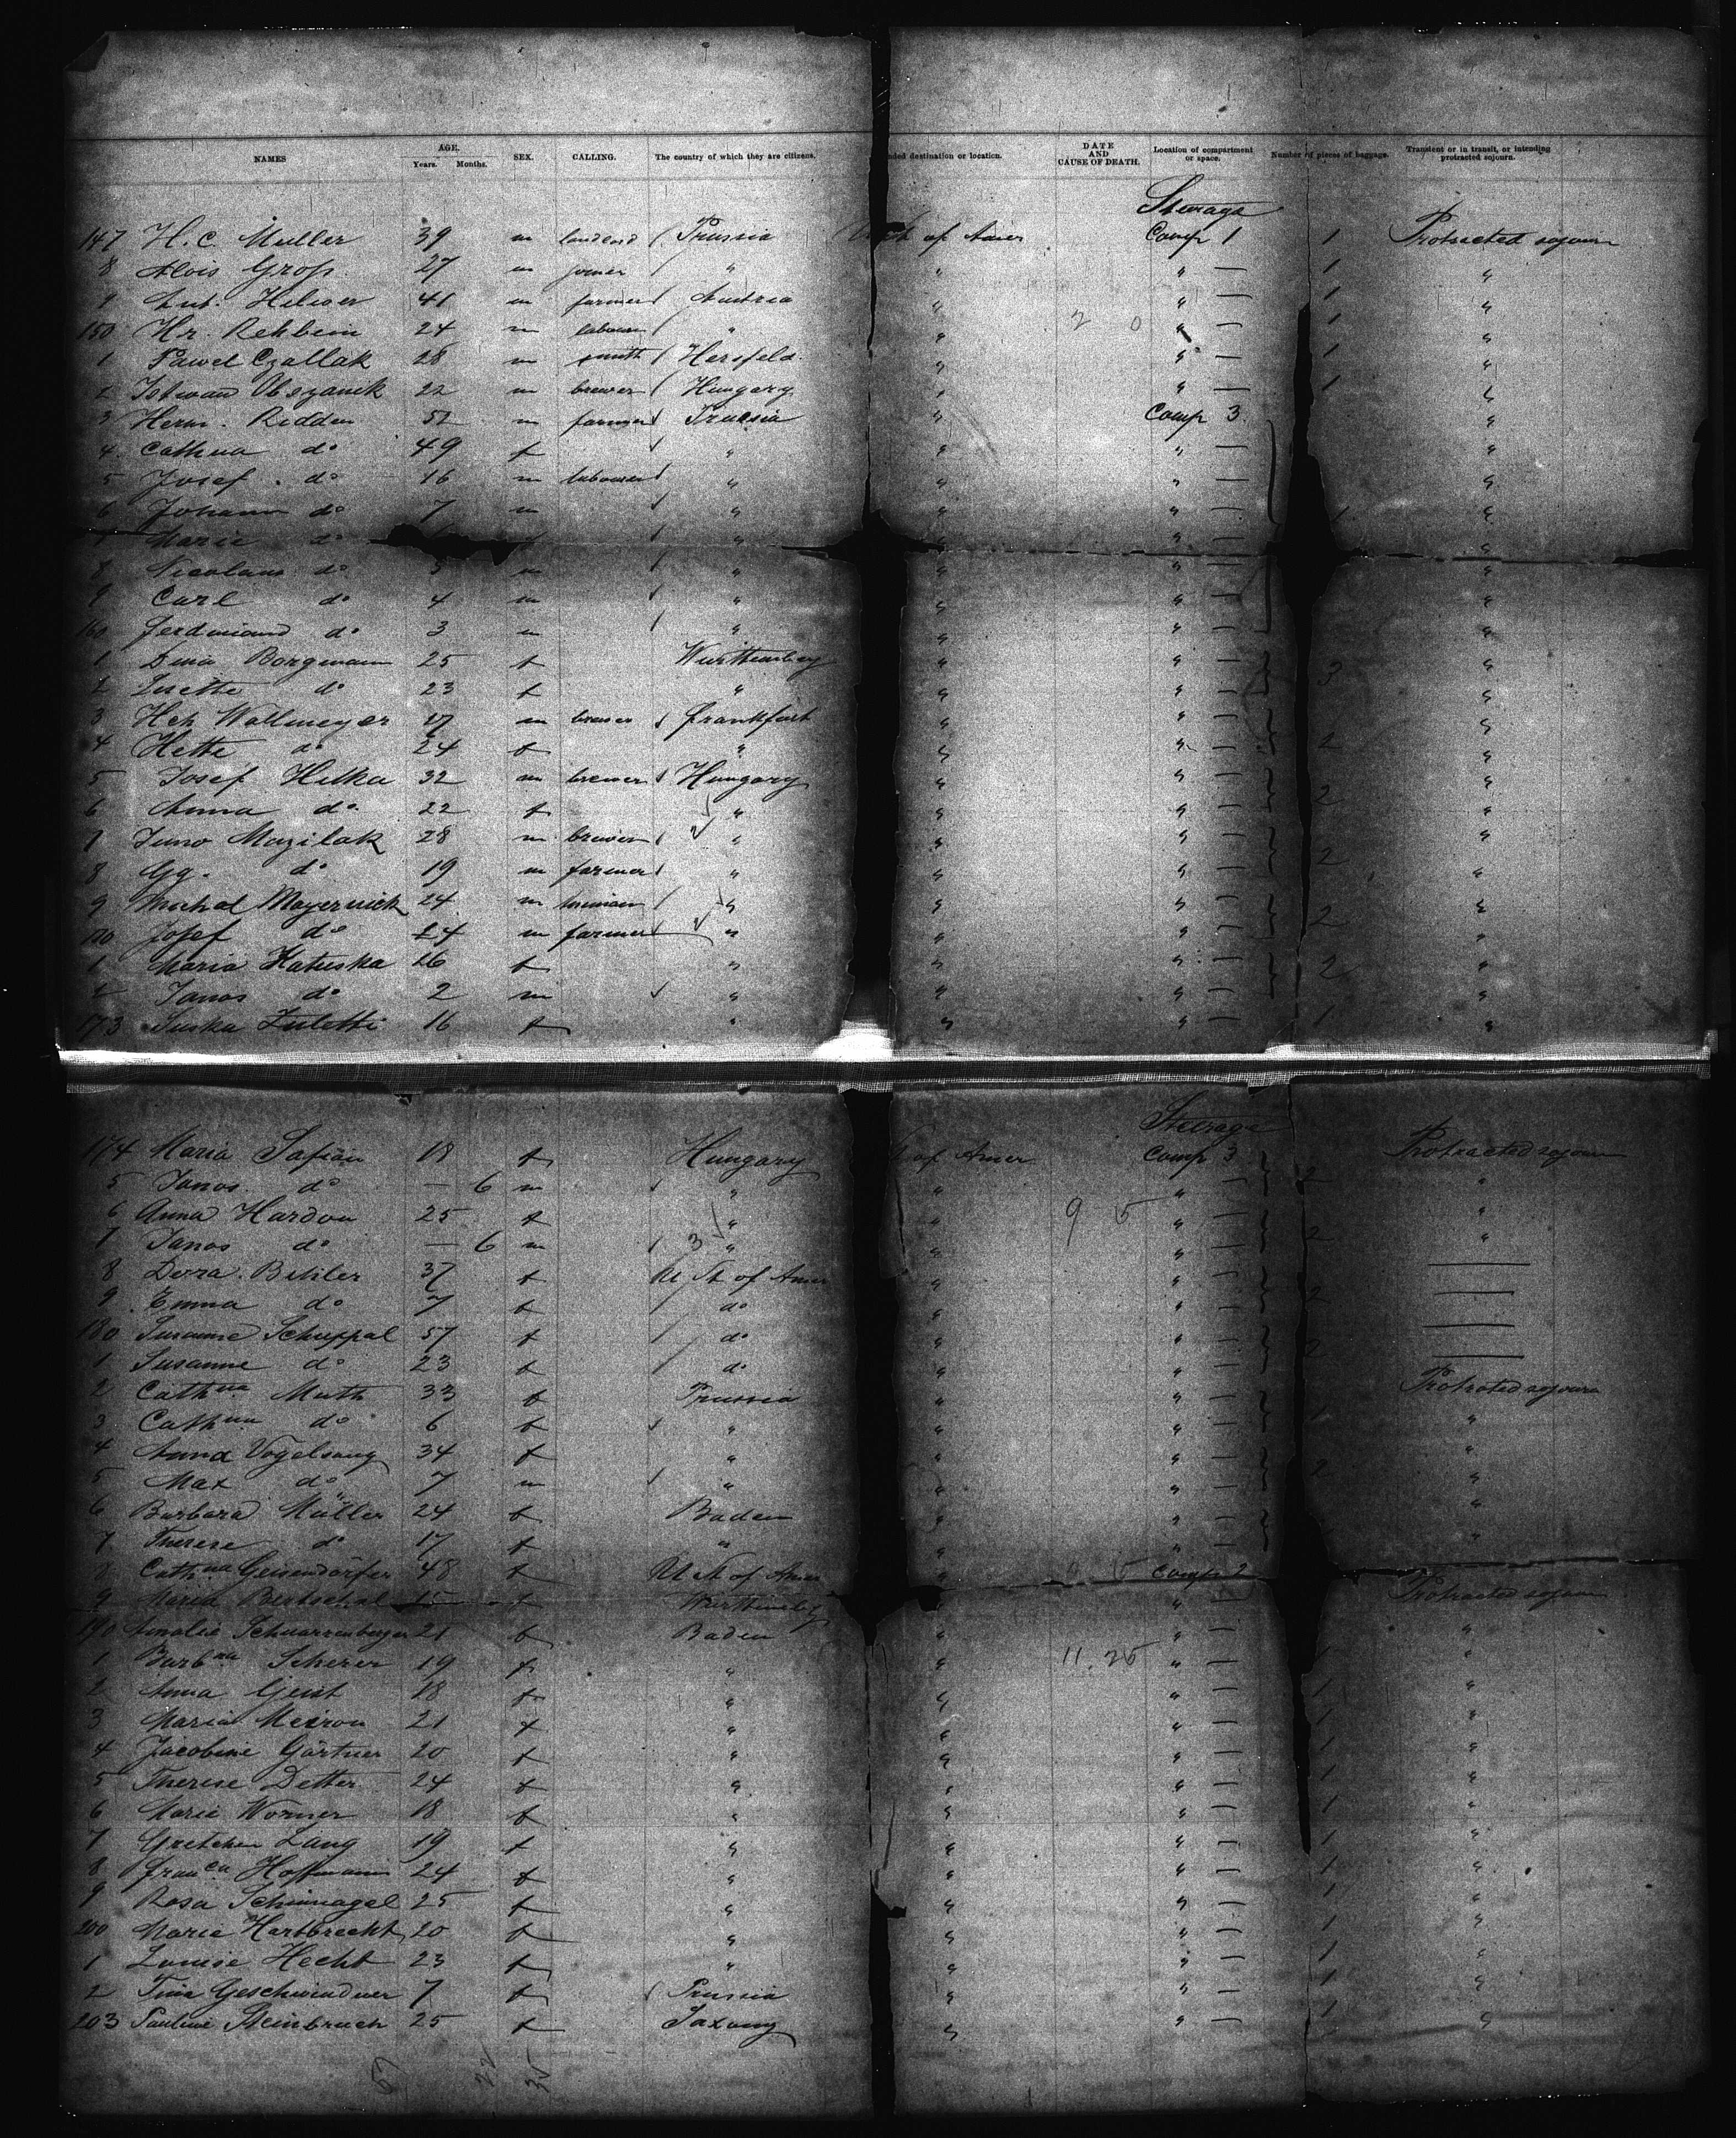 NAMES AGE. Years. Months. SEX. CALLING. The country of which they are citizens. nded destination or location. DATE AND CAUSE OF DEATH. Location of compartment or space. Number of pieces of baggage. Transient or in transit, or intending protracted sojourn.
Steerage
147 H. C. Muller 39 m landlord Prussia of Amer Comp 1 1 Protracted sojourn
8 Alois Groß 27 m joiner " " " — 1 "
9 Ant. 41 m farmer Austria " " — 1 "
150 Hr. Rehbein 24 m labourer " " 2 0 " — 1 "
1 Pawel Czallak 28 m smith Hersfeld " " — 1 "
2 Istwan 22 m brewer Hungary " " — 1 "
3 Herm. Ridder 52 m farmer Prussia " Comp 3 "
4 Cathna do 49 f " " " — "
5 Josef do 16 m labourer " " " — "
6 Johann do 7 m " " " — 1 "
Marie do " " " — "
8 Nicolaus do 5 m " " " — "
9 Carl do 4 m " " " — "
160 Ferdinand do 3 m " " " — "
1 Dina Borgmann 25 f Württemberg " " — 3 "
2 Lisette do 23 f " " " — "
3 Hch Wollmeyer 27 m brewer Frankfurt " " — "
4 Hette do 24 f " " " — 2 "
5 Josef Hilka 32 m brewer Hungary " " — "
6 Anna do 22 f " " " — 2 "
1 Juno Mazilak 28 m brewer " " " — "
8 Gg. do 19 m farmer " " " — 2 "
9 Michal Mayernick 24 m " " " — "
170 Josef do 24 m farmer " " " — 2 "
1 Maria Hatuska 26 f " " " — 2 "
2 Janos do 2 m " " " — "
173 Suska Zuletti 16 f " " " — 1 "
Steerage
174 Maria Safian 18 f Hungary of Amer Comp 3 Protracted sojourn
5 Janos do — 6 m " " " — 2 "
6 Anna Hardon 25 f " " 9 5 " — "
7 Janos do — 6 m 3 " " " — 2 "
8 Dora Bihler 37 f U St of Amer " " — —
9 Emma do 7 f do " " — 2 —
180 Susanne Schuppal 57 f do " " — —
1 Susanne do 23 f do " " — 2 —
2 Cathna Muth 33 f Prussia " " — Protracted sojourn
3 Cathna do 6 f " " " — 1 "
4 Anna Vogelsang 34 f " " " — "
5 Max do 7 m " " " — 2 "
6 Barbara Müller 24 f Baden " " — "
7 Therese do 17 f " " " — "
8 Cathna Geisendörfer 48 f U St of Amer " Comp 2
9 Maria Bertschel 15 f Württemberg " " — Protracted sojourn
190 Amalie Schwarzenberger 21 f Baden " " — "
1 Barbna Scherer 19 f " " 11 25 " — 1 "
2 Anna Geist 18 f " " " — 1 "
3 Maria Meiron 21 f " " " — 1 "
4 Jacobine Gärtner 20 f " " " — 1 "
5 Therese Detter 24 f " " " — 1 "
6 Marie Worner 18 f " " " — 1 "
7 Gretchen Lang 19 f " " " — 1 "
8 Franca Hoffmann 24 f " " " — 1 "
9 Rosa Schinnagel 25 f " " " — 1 "
200 Marie Hartbrecht 20 f " " " — 1 "
1 Louise Hecht 23 f " " " — 1 "
2 Tina Geschwindner 7 f Prussia " " — 1 "
203 Pauline Steinbruch 25 f Saxony " " — 1 "
57 22 35